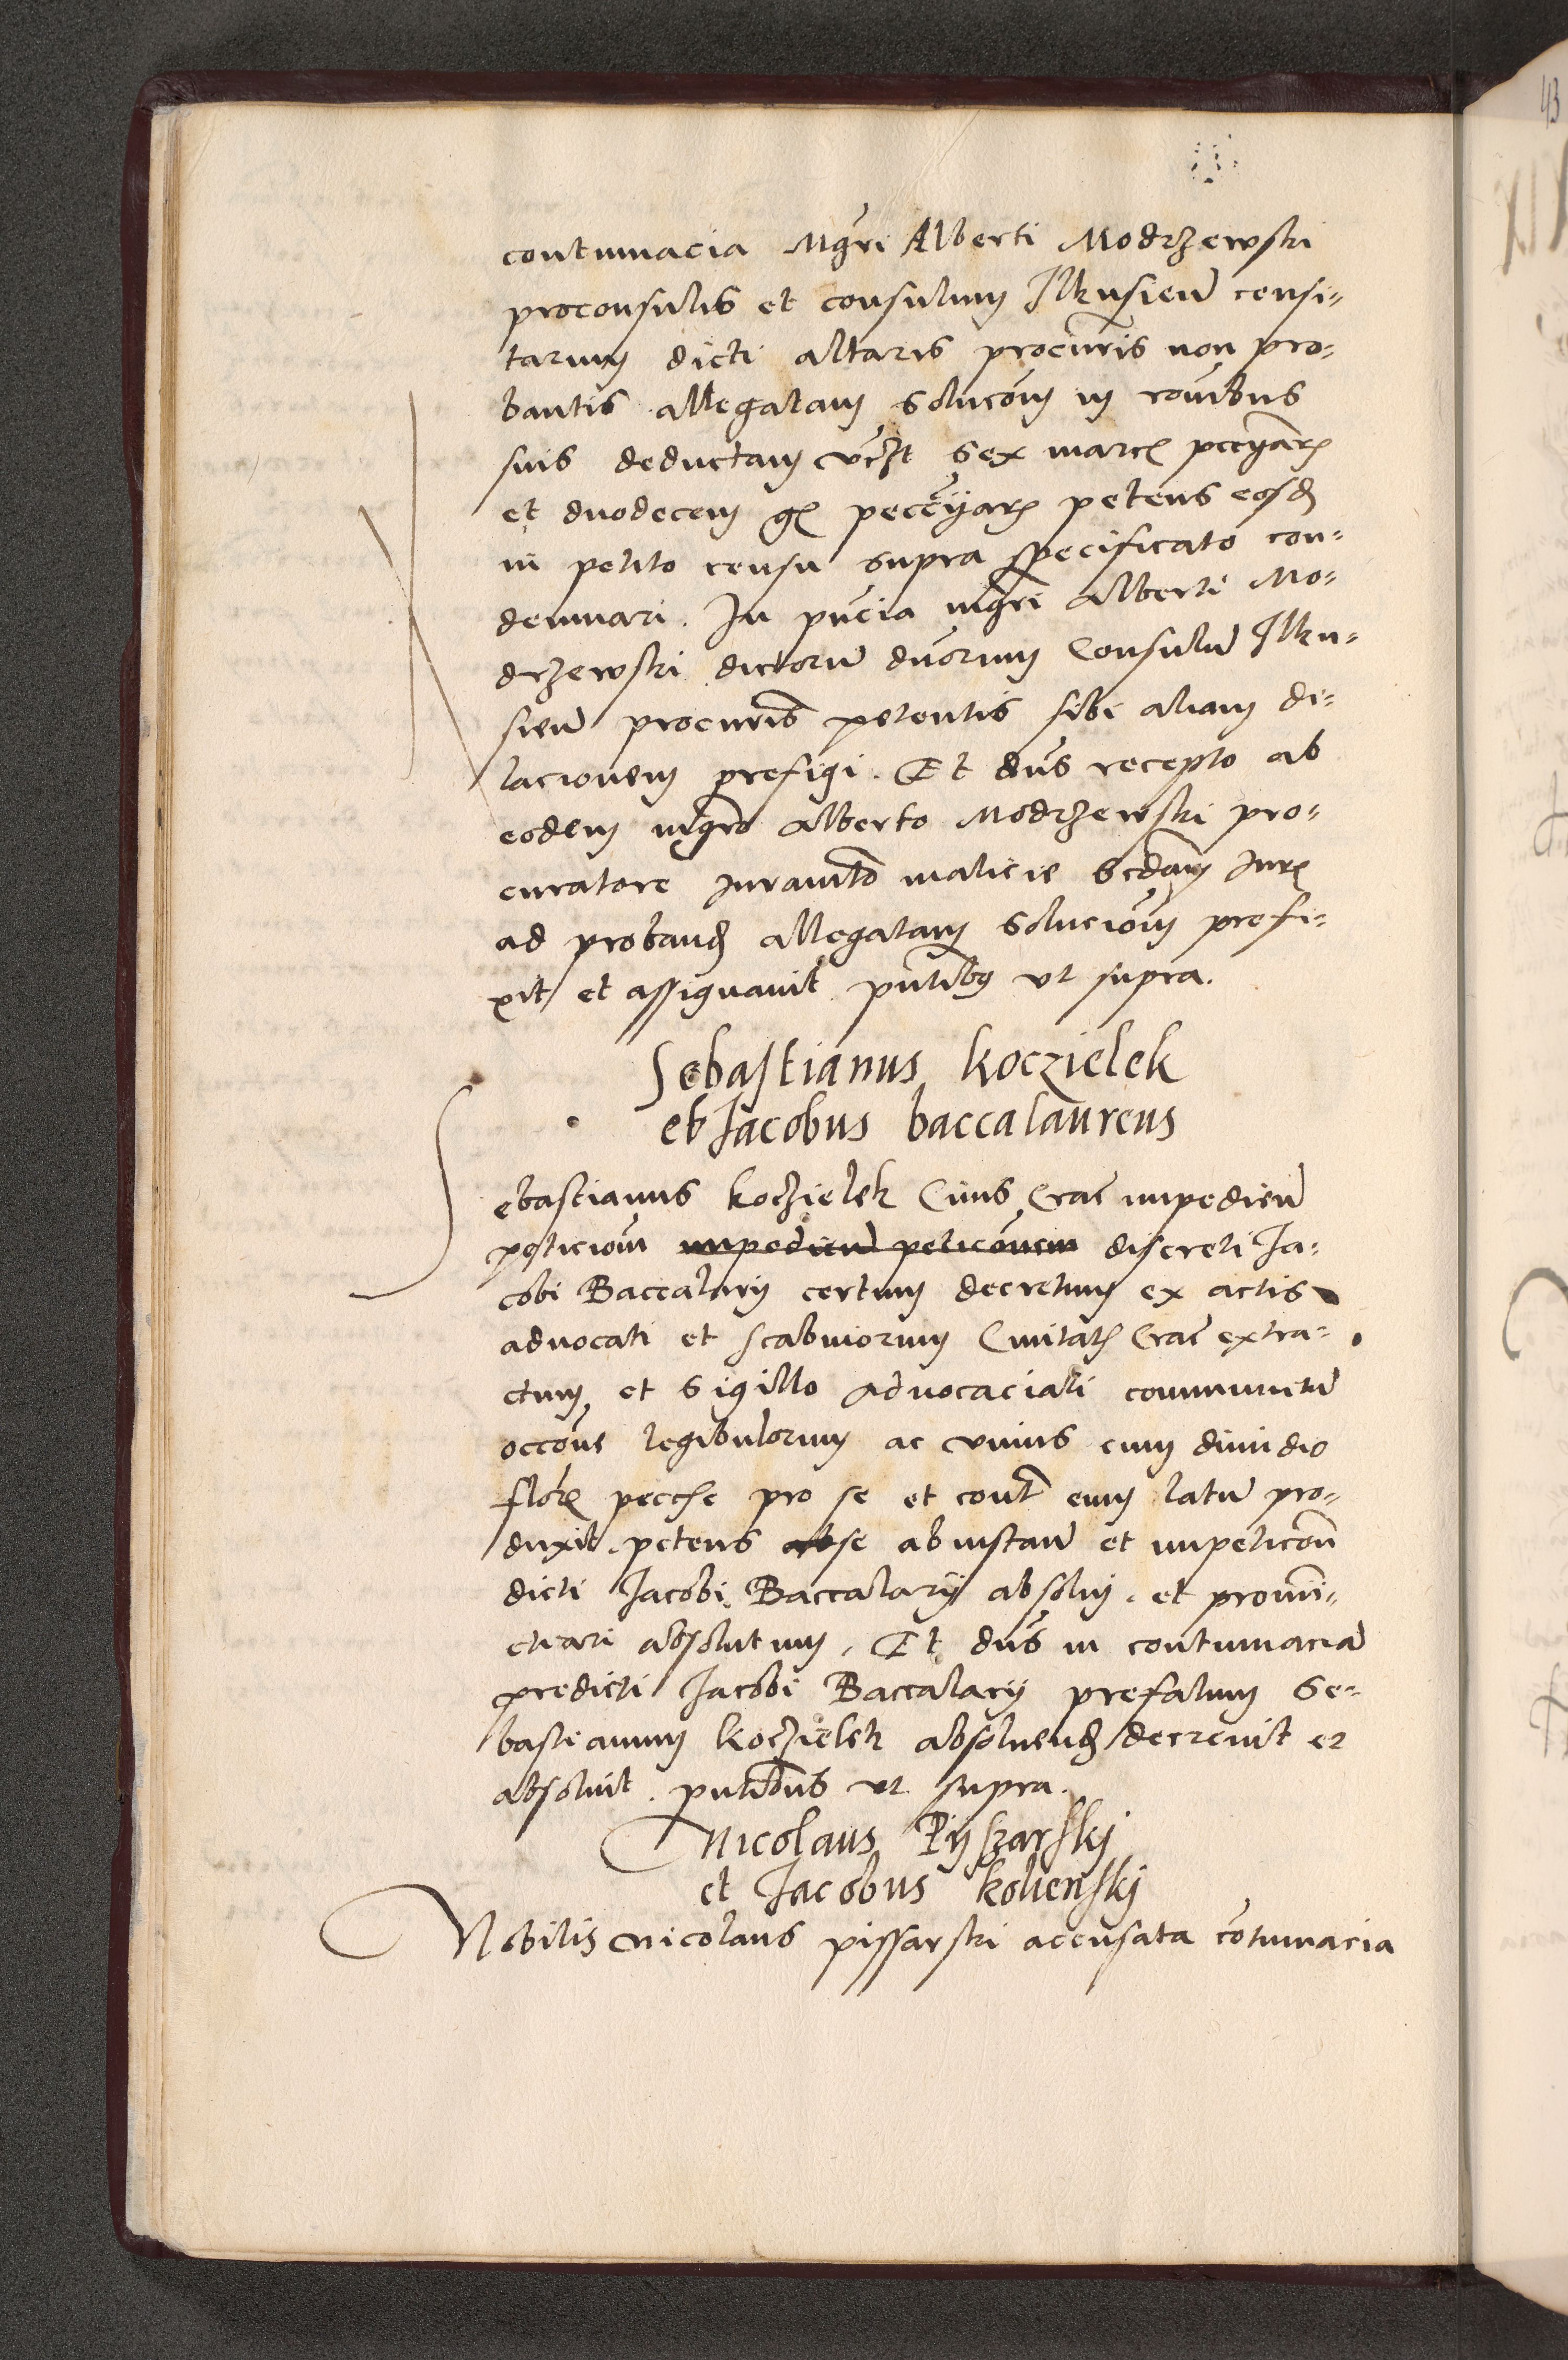 contumacia Mgri Alberti Modrzewski
proconsulis et consulum Ilkusien censi-
tarum dicti altaris procuris non pro-
bantis allegatam solucom in
suis deductam sex marcs
et duodecem petens eosd
in petito censu supra specificato con-
demnari. In pncia mgri Alberti Mo-
drzewski dictoru duorum Consulu Ilku-
sien procuris petentis sibi aliam di-
lacionem prefigi. Et dns recepto ab
eodem mgro Alberto Modrzewski pro-
curatore iuramto malicie scdam
ad proband allegatam soluciom prefi-
xit et assignavit pntibus ut supra.
Sebastianus Koczielek
et Jacobus baccalaureus
Sebastianus Koczielek Civis Crac impedien
peticiom impedien peticonem discreti Ja-
cobi Baccalarij certum decretum ex actis
advocati et scabinorum Civitats Crac extra-
ctum et sigillo advocaciali communitu
occone legibulorum ac unius cum dimidio
pro se et contr eum latu pro-
duxit petens se ab instan et impeticom
dicti Jacobi Baccalarij absolvi et pronun-
ctiari absolutum. Et dns in contumacia
predicti Jacobi Baccalarij prefatum Se-
bastianum Koczielek absolvend decrevit et
absolvit. pntibus ut supra.
Nicolaus Pyszarskj
et Jacobus kolienskj
Nobilis Nicolaus pissarski accusata cotumacia